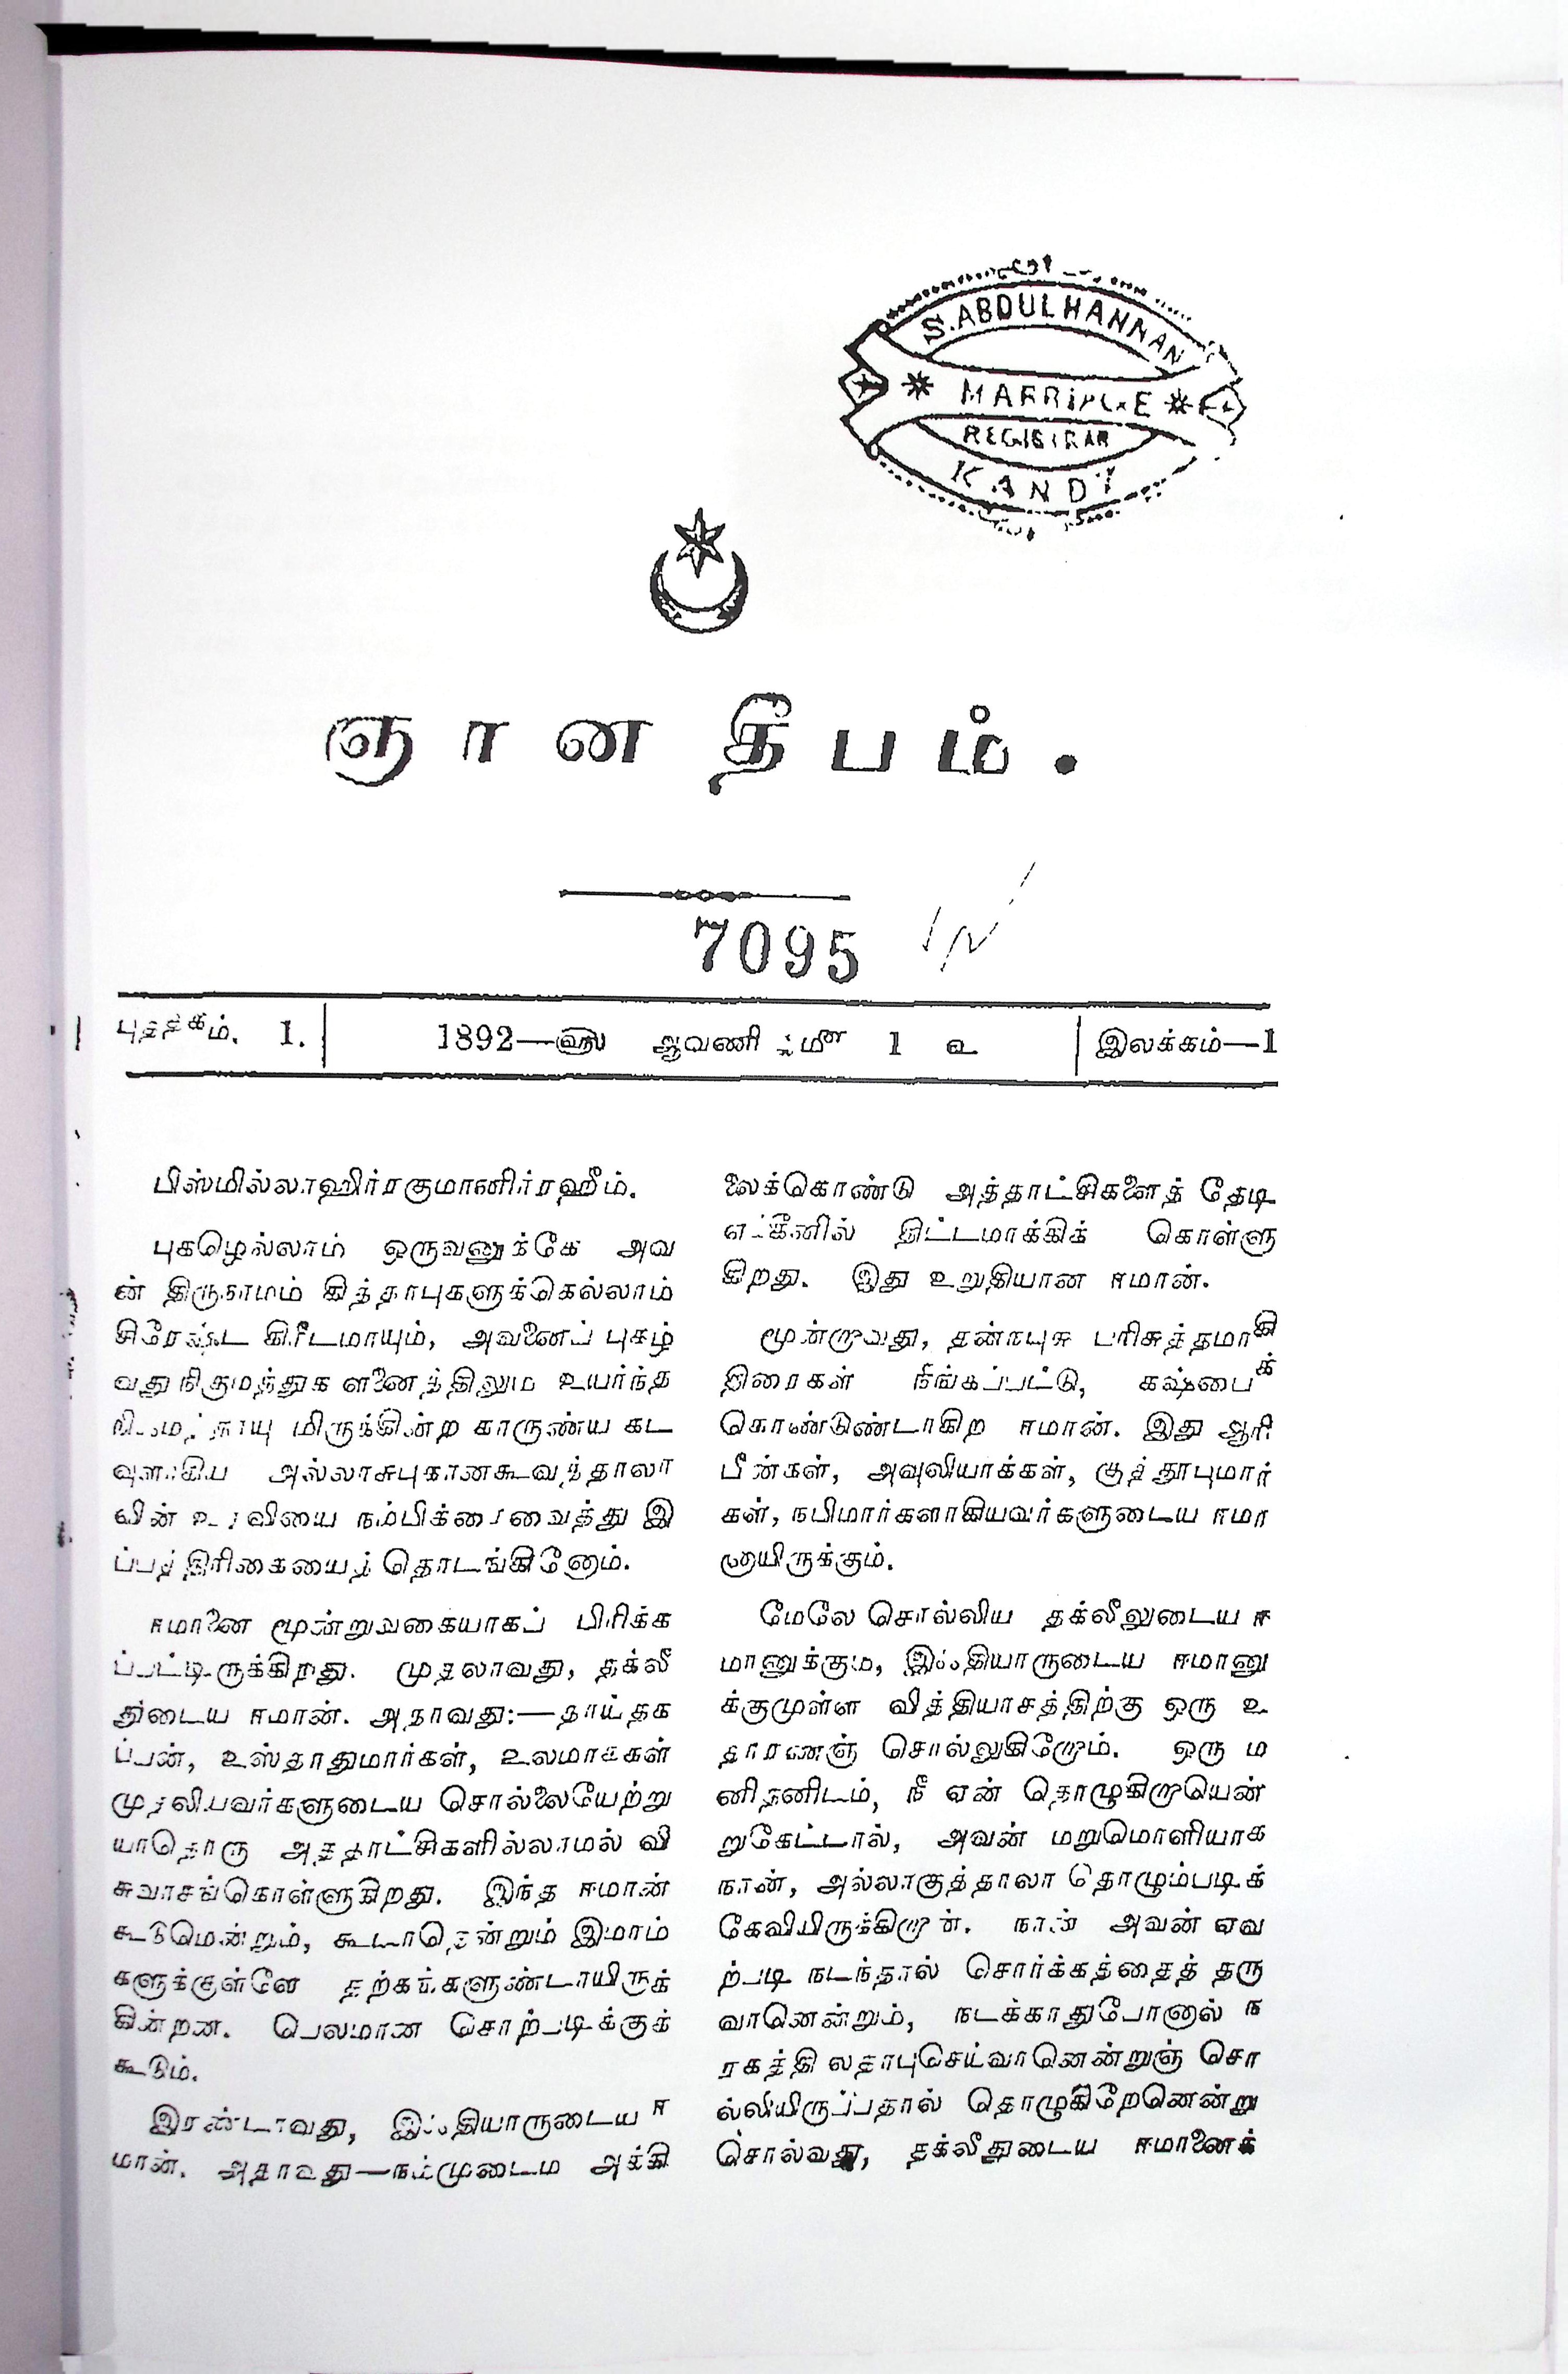 S. ABDUL HANNAN
MARRIAGE
REGISTRAR
KANDY
ஞானதீபம்.
7095
புத்தகம். 1.
1892—௵ ஆவணி ௴ 1 உ
இலக்கம்—1
பிஸ்மில்லாஹிர்ரகுமானிர்ரஹீம்.
புகழெல்லாம் ஒருவனுக்கே அவ
ன் திருநாமம் கித்தாபுகளுக்கெல்லாம்
சிரேஷ்ட கிரீடமாயும், அவனைப் புகழ்
வது நிருமந்துக ளனைத்திலும் உயர்ந்த
மிருக்கின்ற காருண்ய கட
வுளாகிய அல்லாசுபுகானகூவத்தாலா
வின் உதவியை நம்பிக்கைவைத்து இ
ப்பத்திரிகையைத் தொடங்கினோம்.
ஈமானை மூன்றுவகையாகப் பிரிக்க
ப்பட்டிருக்கிறது. முதலாவது, தக்லீ
துடைய ஈமான். அதாவது:—தாய்தக
ப்பன், உஸ்தாதுமார்கள், உலமாக்கள்
முதலியவர்களுடைய சொல்லையேற்று
யாதொரு அத்தாட்சிகளில்லாமல் வி
சுவாசங்கொள்ளுகிறது. இந்த ஈமான்
கூடுமென்றும், கூடாதென்றும் இமாம்
களுக்குள்ளே தற்கங்களுண்டாயிருக்
கின்றன. பெலமான சொற்படிக்குக்
கூடும்.
இரண்டாவது, இஃதியாருடைய ஈ
மான். அதாவது—நம்முடைம அக்கி
லைக்கொண்டு அத்தாட்சிகளைத் தேடி
எக்கீனில் திட்டமாக்கிக் கொள்ளு
கிறது. இது உறுதியான ஈமான்.
மூன்றாவது, தன்நபுசு பரிசுத்தமாகி
திரைகள் நீங்கப்பட்டு, கஷ்பைக்
கொண்டுண்டாகிற ஈமான். இது ஆரி
பீன்கள், அவுலியாக்கள், குத்தூபுமார்
கள், நபிமார்களாகியவர்களுடைய ஈமா
னாயிருக்கும்.
மேலே சொல்லிய தக்லீலுடைய ஈ
மானுக்கும், இஃதியாருடைய ஈமானு
க்குமுள்ள வித்தியாசத்திற்கு ஒரு உ
தாரணஞ் சொல்லுகிறோம். ஒரு ம
னிதனிடம், நீ ஏன் தொழுகிறாயென்
றுகேட்டால், அவன் மறுமொளியாக
நான், அல்லாகுத்தாலா தொழும்படிக்
கேவியிருக்கிறான். நான் அவன் ஏவ
ற்படி நடந்தால் சொர்க்கத்தைத் தரு
வானென்றும், நடக்காதுபோனால் ந
ரகத்தி லதாபுசெய்வானென்றுஞ் சொ
ல்லியிருப்பதால் தொழுகிறேனென்று
சொல்வது, தக்லீதுடைய ஈமானைக்